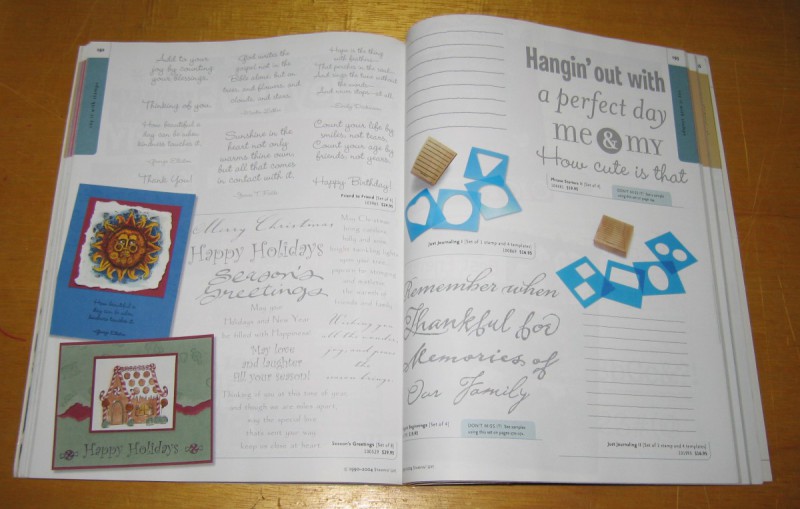 Add to your
joy by counting
your blessings.
Thinking of you.
How beautiful a
day can be when
kindness touches it.
Thank You!
God writes the
gospel not in the
Bible alone, but on
trees and flowers, and
clouds and stars.
Sunshine in the
heart not only
warms thine own,
but all that comes
in contact with it.
Hope is the thing
with feathers—
That perches in the soul...
And sings the tune without
the words—
And never stops—at all.
Emily Dickinson
Count your life by
smiles, not tears.
Count your age by
friends, not years.
Happy Birthday!
Friend to Friend (Set of
Merry Christmas
Happy Holidays
Season's
Greetings
May your
Holidays and New Year
be filled with Happiness!
May love
and laughter
fill your season!
Thinking of you at this time of year
and though we are miles apart,
may the special love
that's sent your way
keep us close at heart.
May Christmas
bring comfort
Wishing you
all the wonder,
joy, and peace
the
season brings.
Season's Greetings (Set of
How beautiful a
day can be when
kindness touches it.
Happy Holidays
Hangin' out with
a perfect day
me & my
How cute is that
Just Journaling I (Set of 1 stamp and 4 templates)
Remember when
Thankful for
Memories of
Our Family
DON'T MISS IT! See samples
using this set on pages
Just Journaling II (Set of 1 stamp and 4 templates)
© 1990-2004 Stampin' Up!